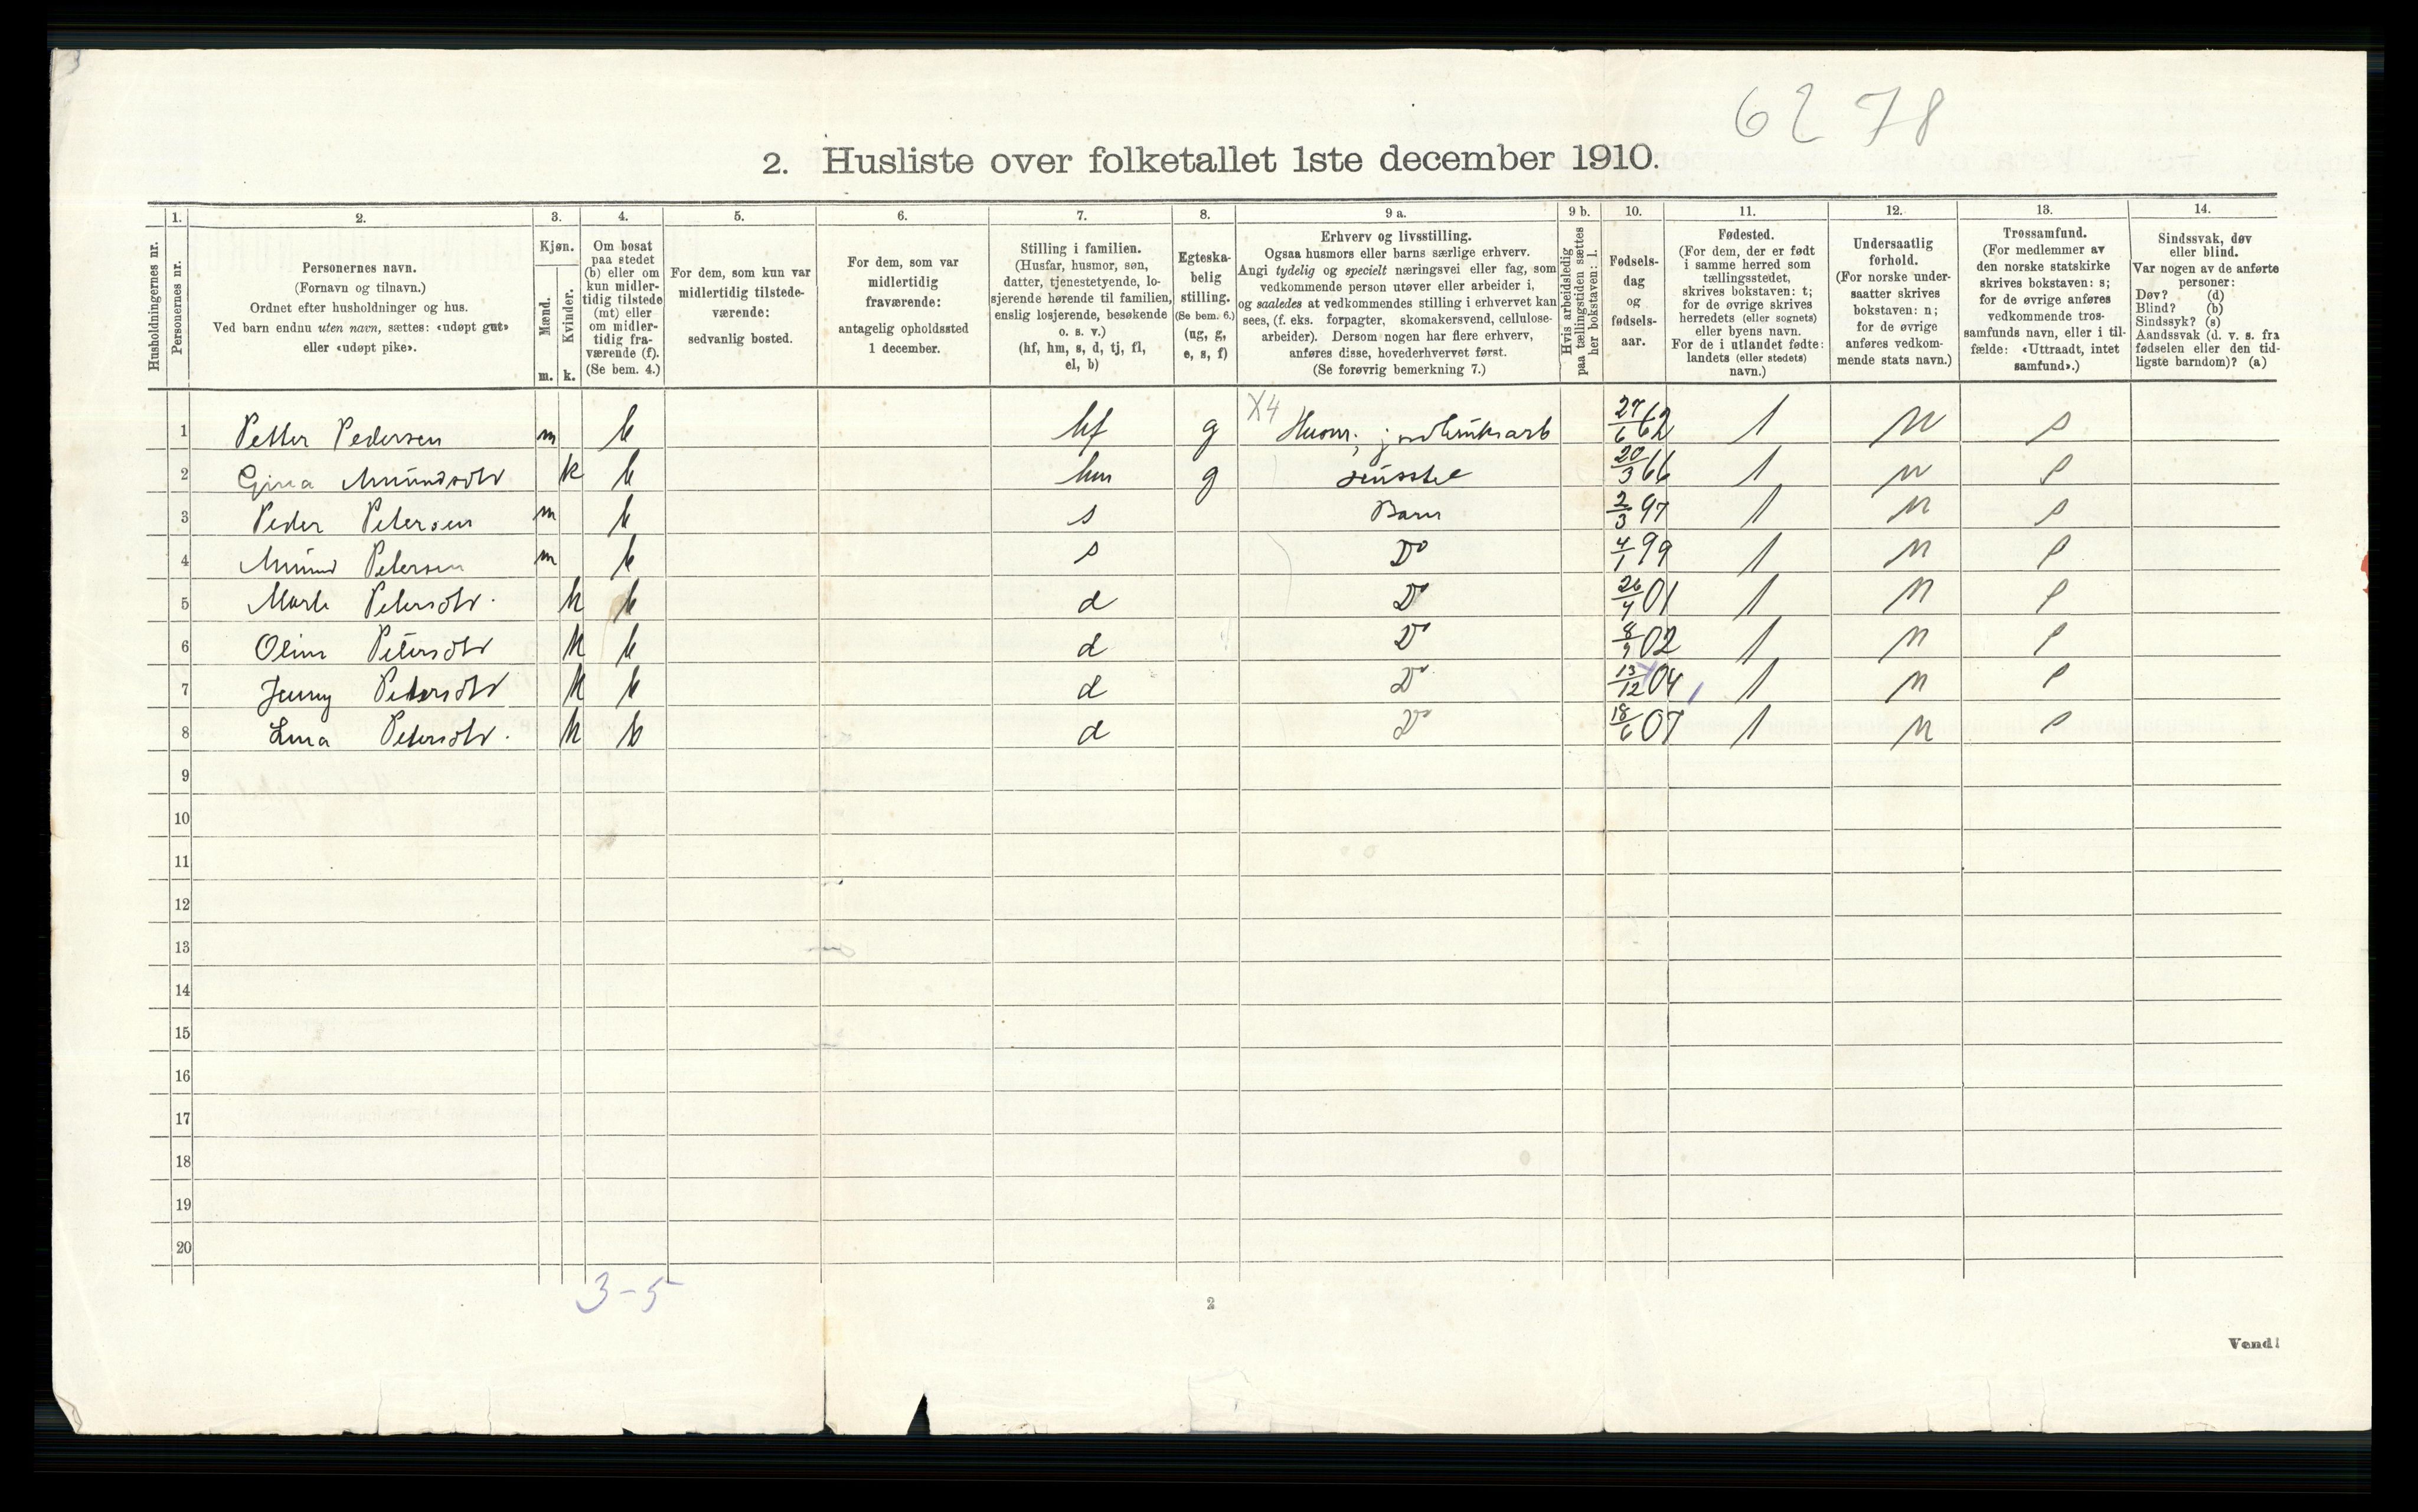 62 78
2. Husliste over folketallet 1ste december 1910.
1. 2. 3. 4. 5. 6. 7. 8. 9 a. 9 b. 10. 11. 12. 13. 14.
Husholdningernes nr.
Personernes nr.
Personernes navn.
(Fornavn og tilnavn.)
Ordnet efter husholdninger og hus.
Ved barn endnu uten navn, sættes: «udøpt gut»
eller «udøpt pike».
Kjøn.
Mænd.
Kvinder.
m. k.
Om bosat
paa stedet
(b) eller om
kun midler-
tidig tilstede
(mt) eller
om midler-
tidig fra-
værende (f).
(Se bem. 4.)
For dem, som kun var
midlertidig tilstede-
værende:
sedvanlig bosted.
For dem, som var
midlertidig
fraværende:
antagelig opholdssted
1 december.
Stilling i familien.
(Husfar, husmor, søn,
datter, tjenestetyende, lo-
sjerende hørende til familien,
enslig losjerende, besøkende
o. s. v.)
(hf, hm, s, d, tj, fl,
el, b)
Egteska-
belig
stilling.
(Se bem. 6.)
(ug, g,
e, s, f)
Erhverv og livsstilling.
Ogsaa husmors eller barns særlige erhverv.
Angi tydelig og specielt næringsvei eller fag, som
vedkommende person utøver eller arbeider i,
og saaledes at vedkommendes stilling i erhvervet kan
sees, (f. eks. forpagter, skomakersvend, cellulose-
arbeider). Dersom nogen har flere erhverv,
anføres disse, hovederhvervet først.
(Se forøvrig bemerkning 7.)
Hvis arbeidsledig
paa tællingstiden sættes
her bokstaven: l.
Fødsels-
dag
og
fødsels-
aar.
Fødested.
(For dem, der er født
i samme herred som
tællingsstedet,
skrives bokstaven: t;
for de øvrige skrives
herredets (eller sognets)
eller byens navn.
For de i utlandet fødte:
landets (eller stedets)
navn.)
Undersaatlig
forhold.
(For norske under-
saatter skrives
bokstaven: n;
for de øvrige
anføres vedkom-
mende stats navn.)
Trossamfund.
(For medlemmer av
den norske statskirke
skrives bokstaven: s;
for de øvrige anføres
vedkommende tros-
samfunds navn, eller i til-
fælde: «Uttraadt, intet
samfund».)
Sindssvak, døv
eller blind.
Var nogen av de anførte
personer:
Døv? (d)
Blind? (b)
Sindssyk? (s)
Aandssvak (d. v. s. fra
fødselen eller den tid-
ligste barndom)? (a)
1 Petter Pedersen m b hf g X4 Husm. jordbruksarb 27/6 62 t n s
2 Gina Amundsdtr k b hm g Husstel 20/3 66 t n s
3 Peder Petersen m b s Barn 2/3 97 t n s
4 Amund Petersen m b s Do 4/1 99 t n s
5 Petersdtr. k b d Do 01 t n s
6 Petersdtr k b d Do 02 t n s
7 Jenny Petersdtr k b d Do 13/12 04 t n s
8 Petersdtr. k b d Do 18/6 07 t n s
9
10
11
12
13
14
15
16
17
18
19
20
3-5
2
Vend!